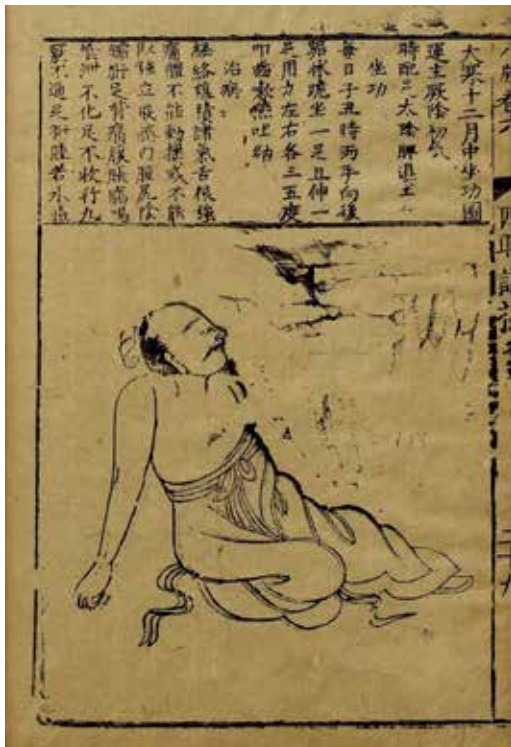 卷六
大寒十二月中坐功圖
運主厥陰初氣
時配足太陰脾濕土
坐功
每日子丑時兩手向後
踞床跪坐一足直伸一
足用力左右各三五度
叩齒漱嚥吐納
治病
經絡蘊積諸氣舌根強
痛體不能動搖或不能
臥強立股膝內腫尻陰
臑胻足背痛腹脹腸鳴
飧泄不化足不收行九
竅不通足胻腫若水脹